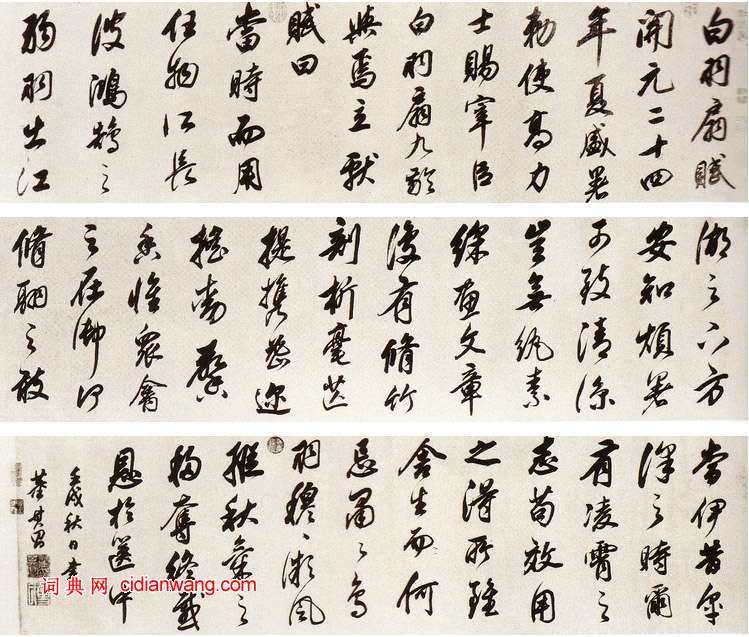 白羽扇賦
開元二十四
年夏盛暑
勅使高力
士賜宰臣
白羽扇九齡
與焉立獻
賦曰
當時而用
任物所長
彼鴻鵠之
弱羽出江
湖之下方
安知煩暑
可致清涼
豈無紈素
綵畫文章
復有脩竹
剖析毫芒
提攜密邇
搖動馨
香惟眾禽
之在御何
脩翮之敢
當伊昔皋
澤之時爾
有凌霄之
志苟效用
之得所雖
舍生而何
忌肅肅鳥
羽穆穆風
縱秋氣之
移奪終感
恩於篋中
壬戌秋日書
董其昌
词典网 cidianwang.com